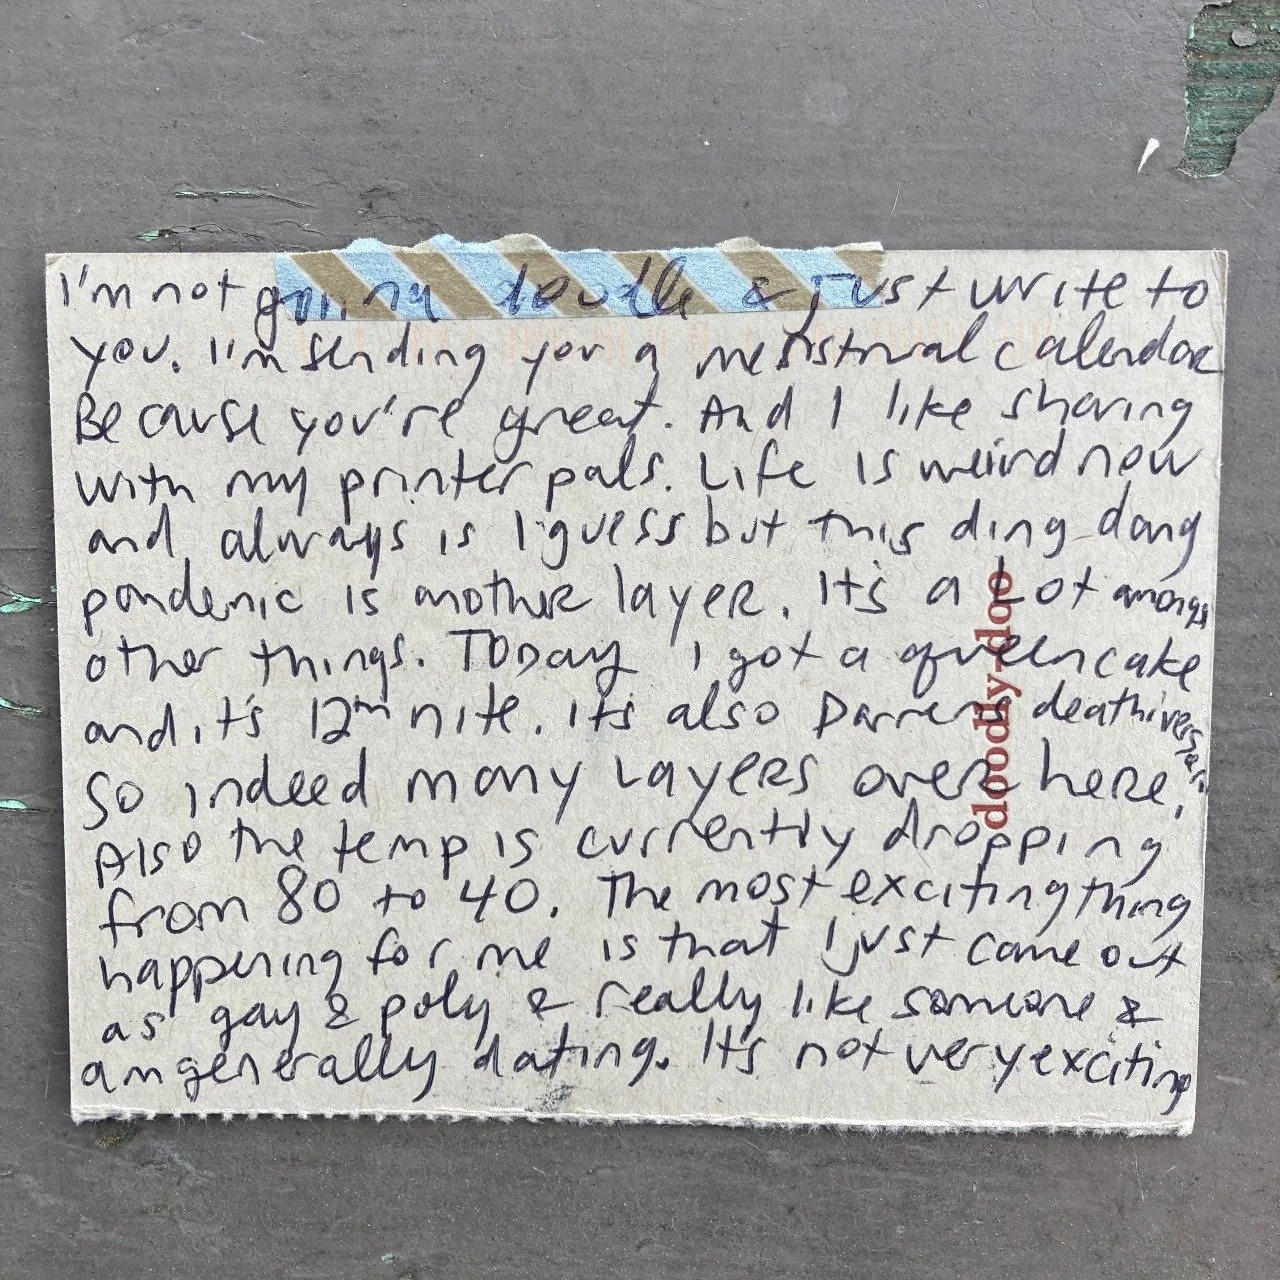 I'm not gonna doodle & just write to
you. I'm sending you a menstrual calendar
Because you're great. And I like sharing
with my printer pals. Life is weird now
and always is I guess but this ding dang
pandemic is another layer. It's a Lot amongst
other things. Today I got a queen cake
and it's 12th nite. It's also Darren's deathiversary.
So indeed many Layers over here.
Also the temp is currently dropping
from 80 to 40. The most exciting thing
happening for me is that I just came out
as gay & poly & really like someone &
am generally dating. It's not very exciting
doodly-doo